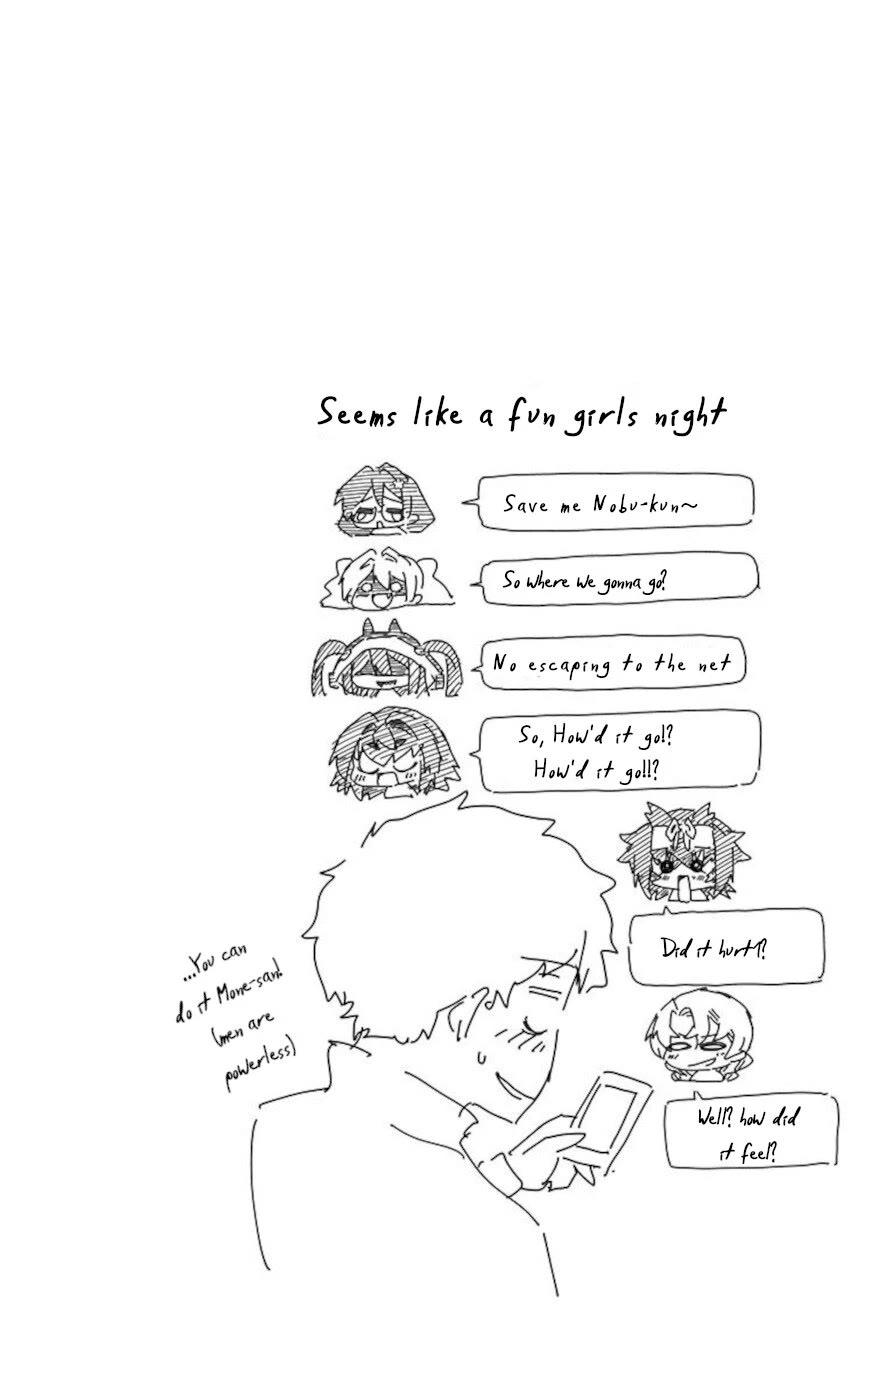 Seems like a fun girls night
Save me Nobu-kun~
So where we gonna go?
No escaping to the net
So, How'd it go!?
How'd it go!!?
Did it hurt!?
Well? how did
it feel?
...You can
do it Mone-san!
(men are
powerless)